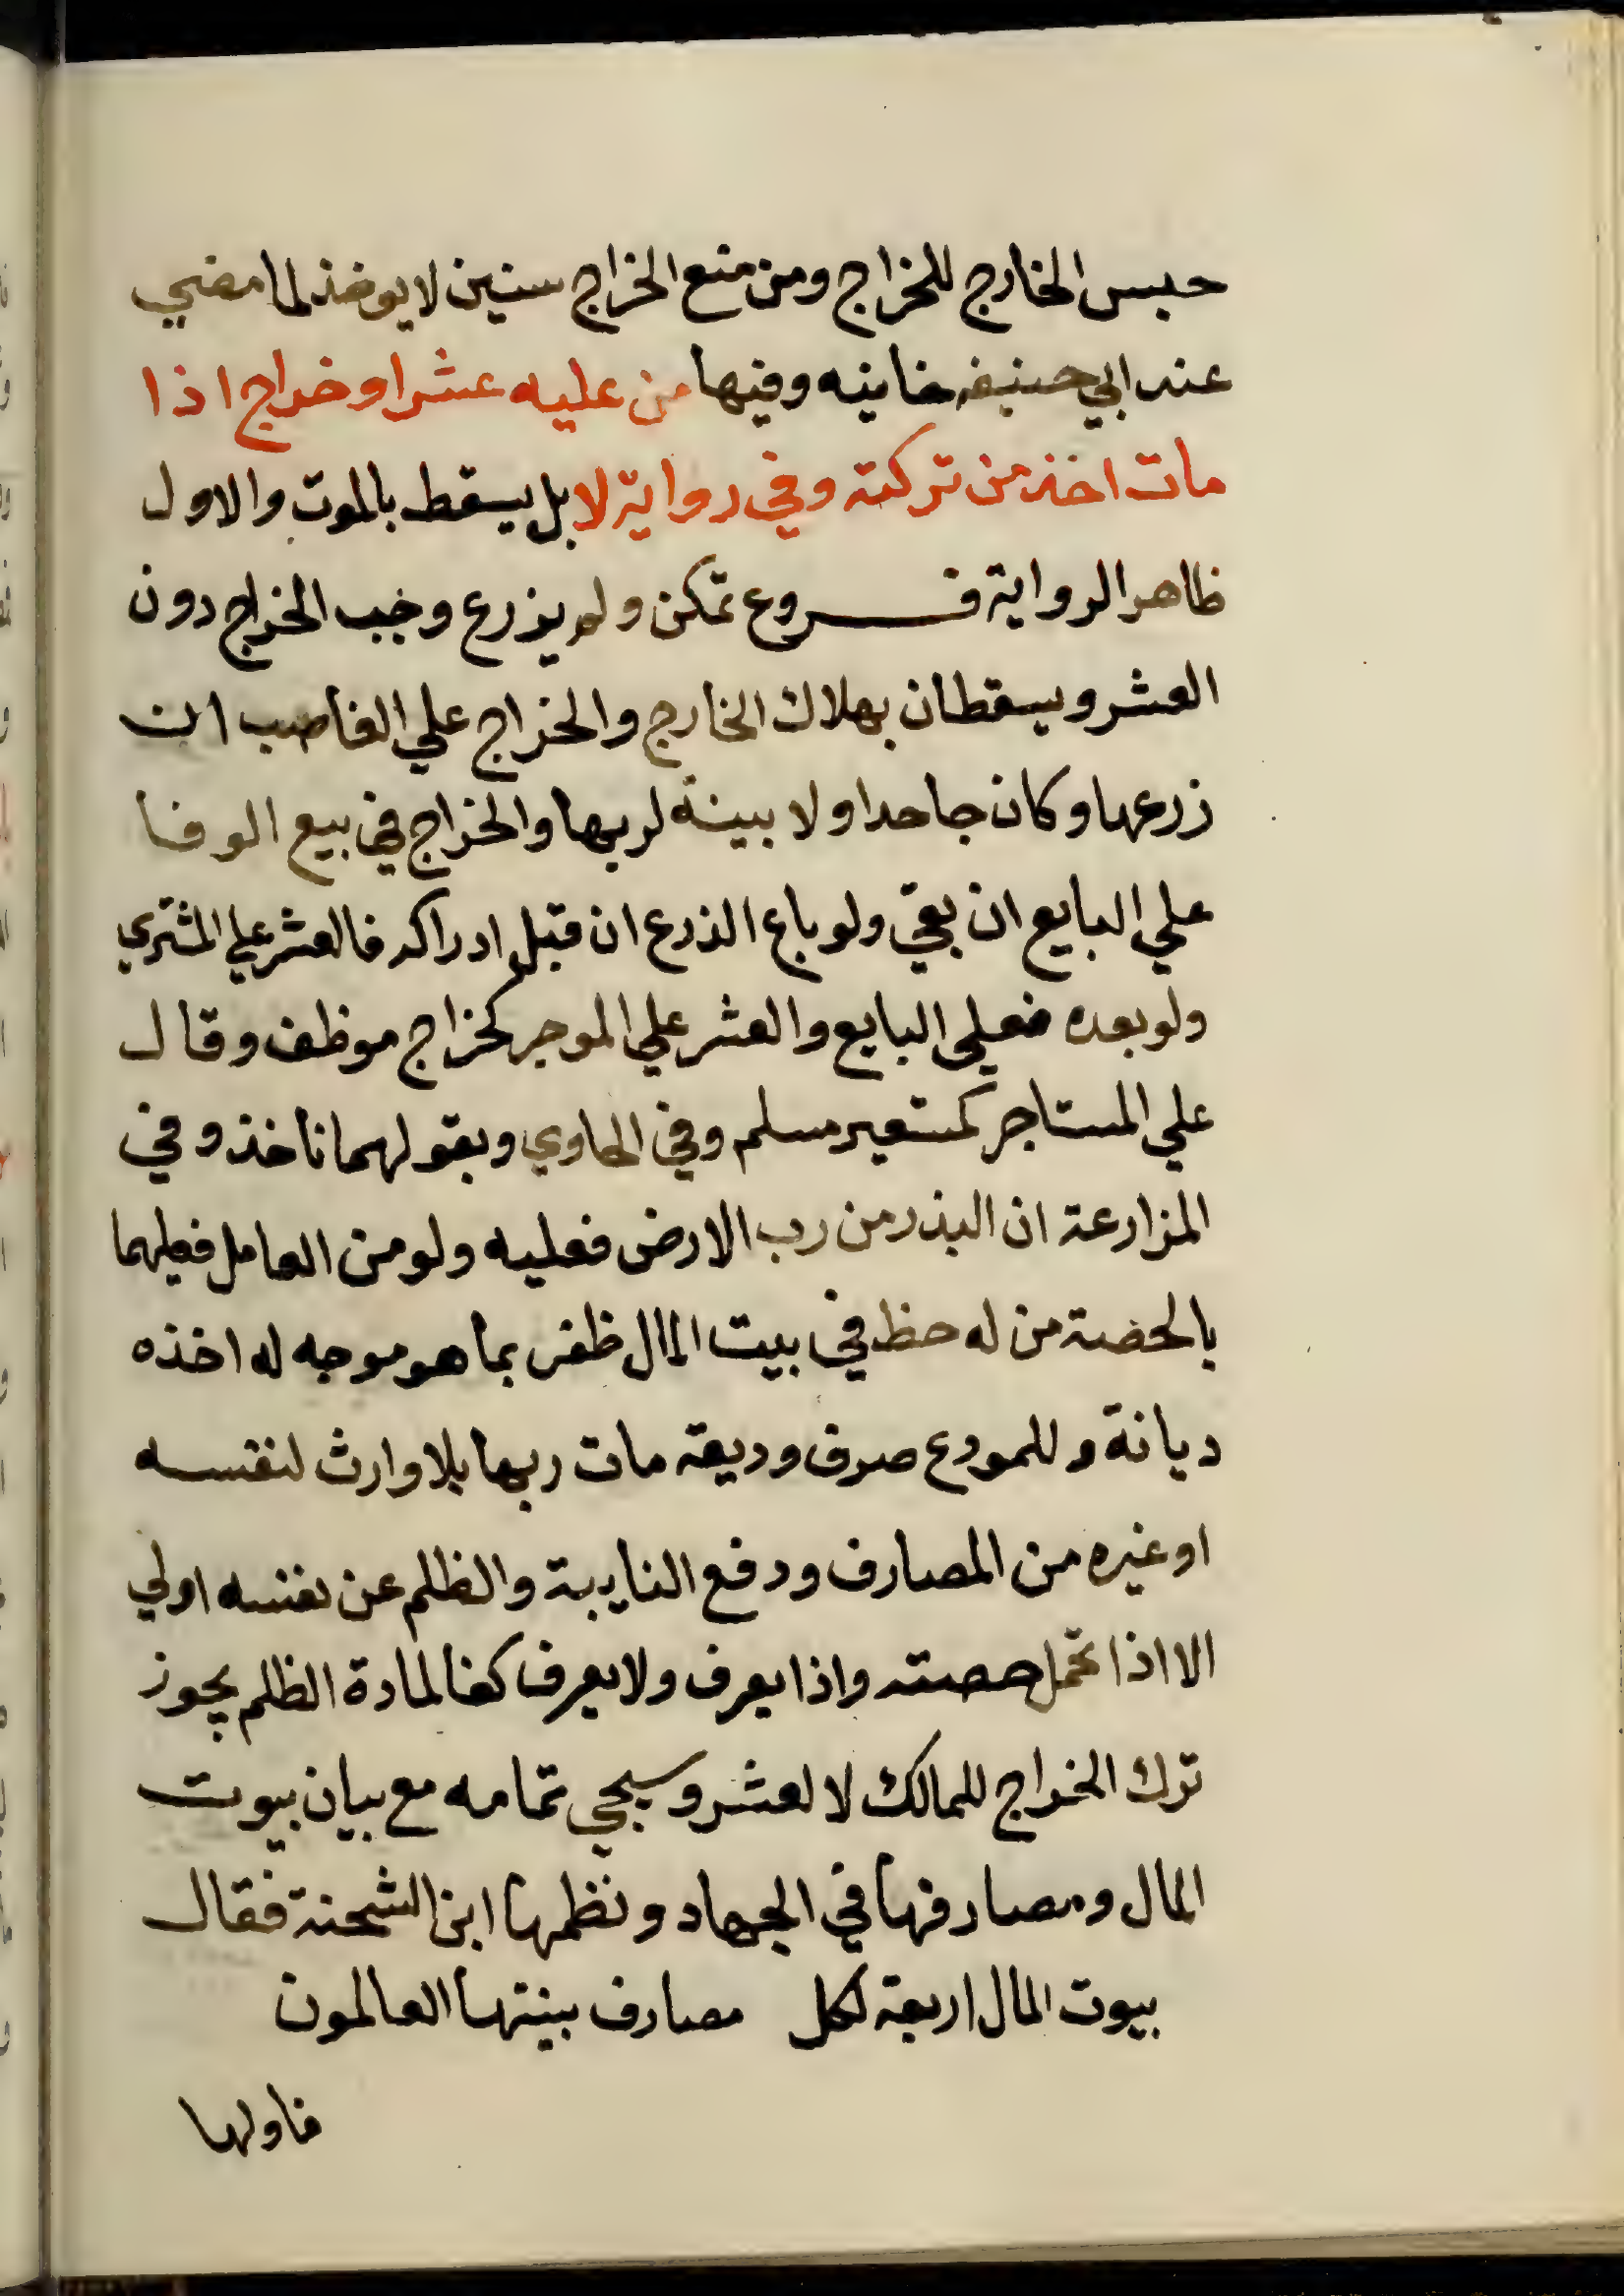 حبس الخارج للخراج ومن منع الخراج سنين لا يوخذ لما مضي
عند ابي حنيفه خانيه وفيها من عليه عشر او خراج اذا
مات اخذ من تركته وفي رواية لا بل يسقط بالموت والاول
ظاهر الرواية فروع تمكن ولم يزرع وجب الخراج دون
العشر ويسقطان بهلاك الخارج والخراج علي الغاصب ان
زرعها وكان جاحدا ولا بينة لربها والخراج في بيع الوفا
علي البايع ان بقي ولو باع الذرع ان قبل ادراكه فالعشر علي المشتري
ولو بعده فعلي البايع والعشر علي الموجر كخراج موظف وقال
علي المستاجر كمستعير مسلم وفي الحاوي وبقولهما ناخذ وفي
المزارعة ان البذر من رب الارض فعليه ولو من العامل فعليهما
بالحضة من له حظ في بيت المال ظفر بما هو موجه له اخذه
ديانة وللمودع صرف وديعة مات ربها بلا وارث لنفسه
او غيره من المصارف ودفع النايبة والظلم عن نفسه اولي
الا اذا تحمل حصته واذا يعرف ولا يعرف كفا لمادة الظلم يجوز
ترك الخراج للمالك لا لعشر وسيجي تمامه مع بيان بيوت
المال ومصارفها في الجهاد ونظمها ابن الشحنة فقال
بيوت المال اربعة لكل مصارف بينتها العالمون
فاولها